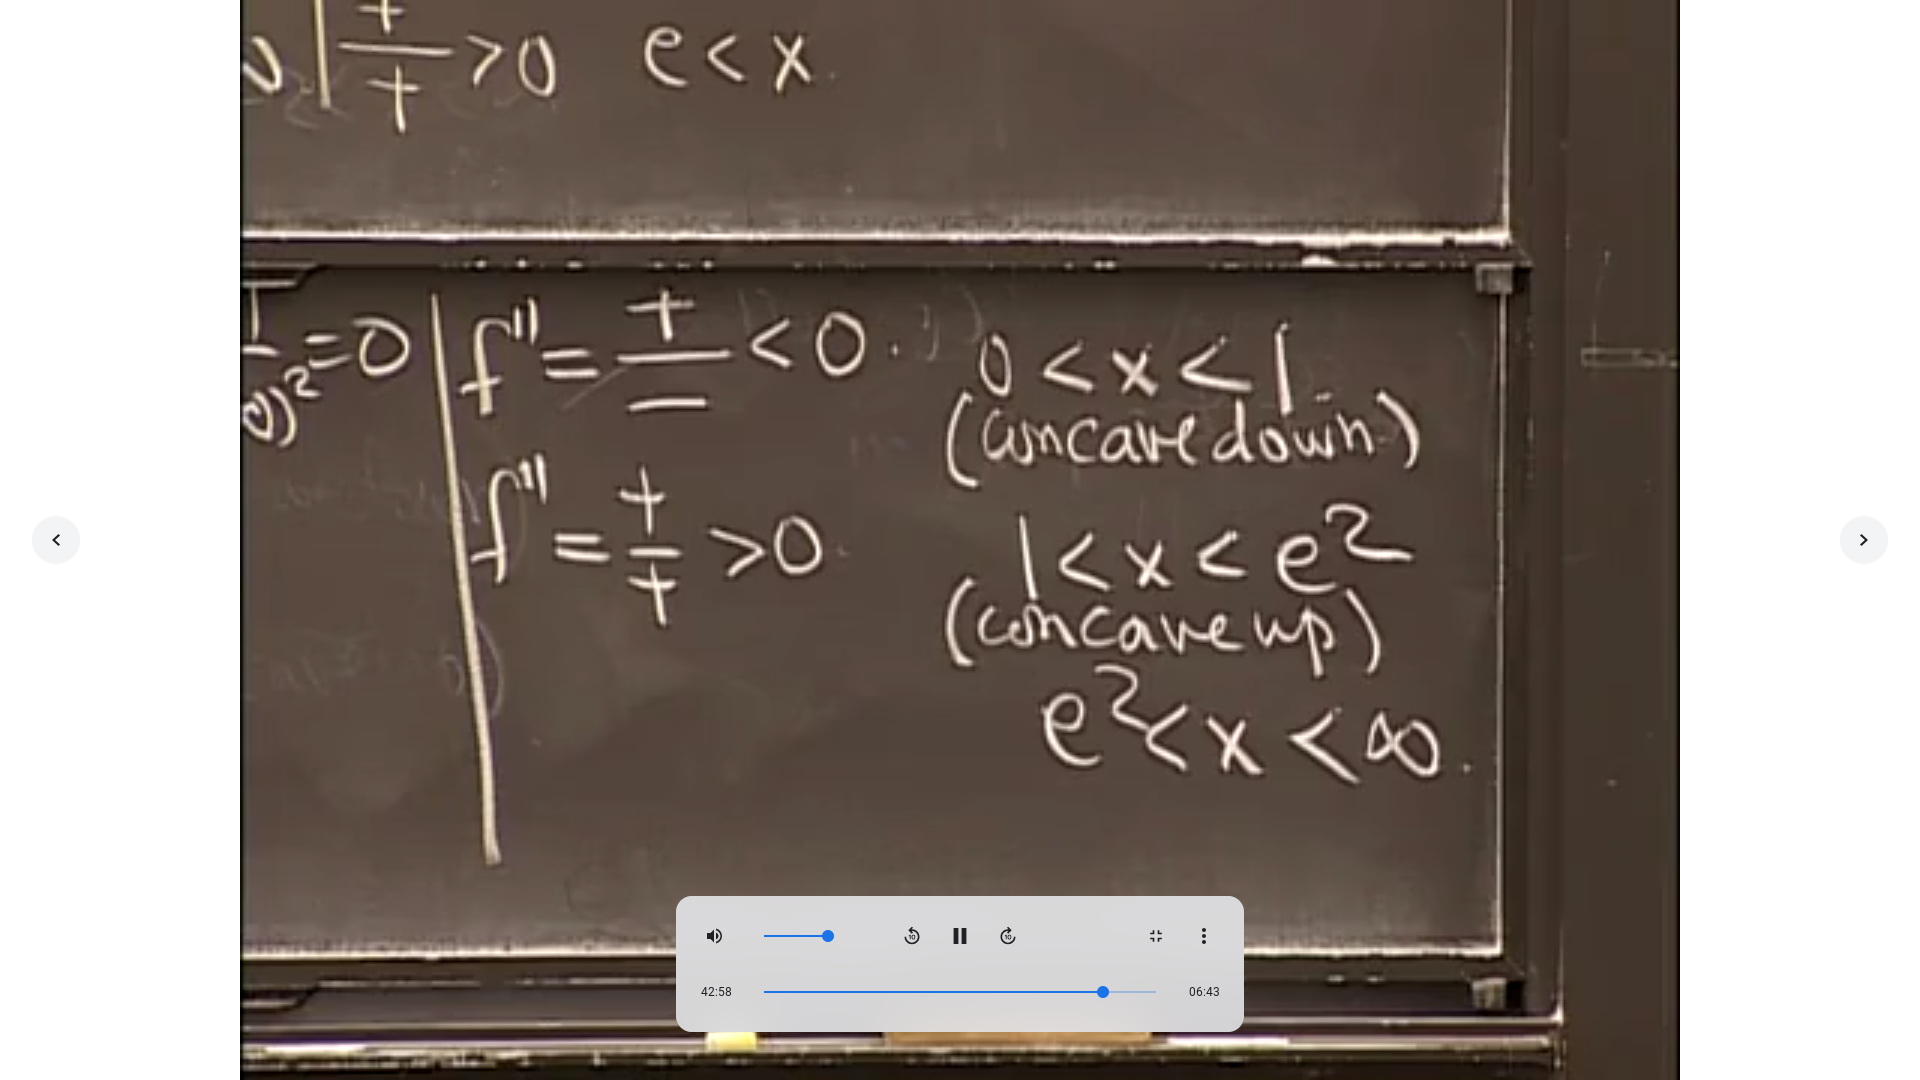 +/+ > 0   e < x
= 0   f'' = +/− < 0   0 < x < 1
(concave down)
f'' = +/+ > 0   1 < x < e²
(concave up)
e² < x < ∞
42:58   06:43